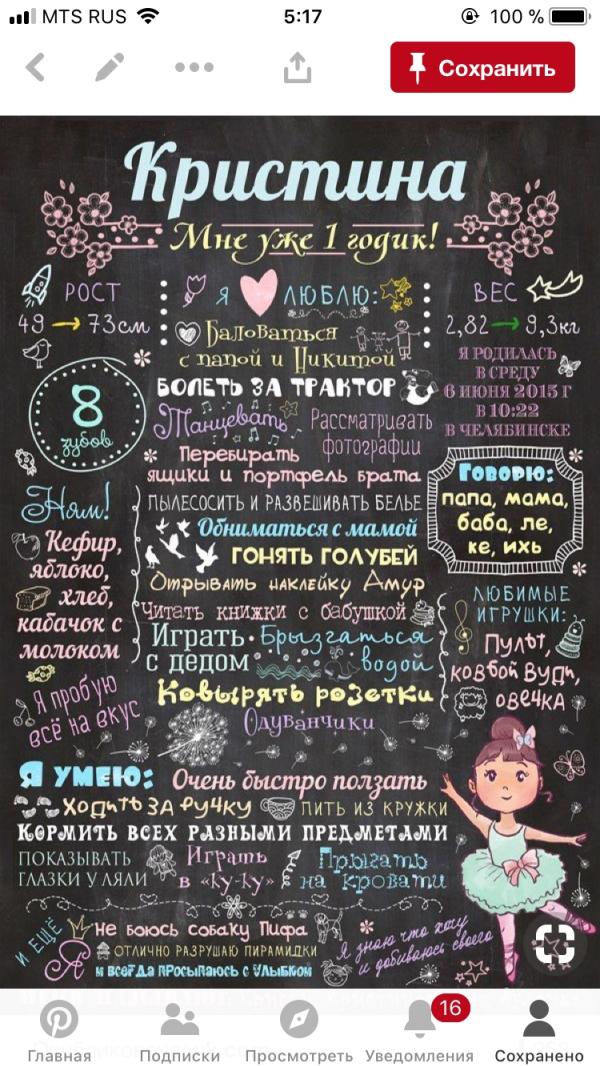 MTS RUS 5:17 100 %
Сохранить
Кристина
Мне уже 1 годик!
РОСТ
49 → 73см
Я ЛЮБЛЮ:
ВЕС
2,82 → 9,3кг
Баловаться
с папой и Никитой
БОЛЕТЬ ЗА ТРАКТОР
Танцевать
Рассматривать
фотографии
Перебирать
ящики и портфель брата
ПЫЛЕСОСИТЬ И РАЗВЕШИВАТЬ БЕЛЬЕ
Обниматься с мамой
ГОНЯТЬ ГОЛУБЕЙ
Отрывать наклейку Амур
Читать книжки с бабушкой
Играть
с дедом
Брызгаться
водой
Ковырять розетки
Одуванчики
8
зубов
Я РОДИЛАСЬ
В СРЕДУ
6 ИЮНЯ 2015 Г
В 10:22
В ЧЕЛЯБИНСКЕ
Ням!
Кефир,
яблоко,
хлеб,
кабачок с
молоком
Я пробую
всё на вкус
Говорю:
папа, мама,
баба, ле,
ке, ихь
ЛЮБИМЫЕ
ИГРУШКИ:
Пульт,
ковбой Вуди,
овечка
Я УМЕЮ:
Очень быстро ползать
Ходить за ручку
ПИТЬ ИЗ КРУЖКИ
КОРМИТЬ ВСЕХ РАЗНЫМИ ПРЕДМЕТАМИ
ПОКАЗЫВАТЬ
ГЛАЗКИ У ЛЯЛИ
Играть
в «ку-ку»
Прыгать
на кровати
И ЕЩЁ
Я
Не боюсь собаку Пифа
ОТЛИЧНО РАЗРУШАЮ ПИРАМИДКИ
и всегда просыпаюсь с улыбкой
Я знаю что хочу
и добиваюсь своего
16
Главная Подписки Просмотреть Уведомления Сохранено